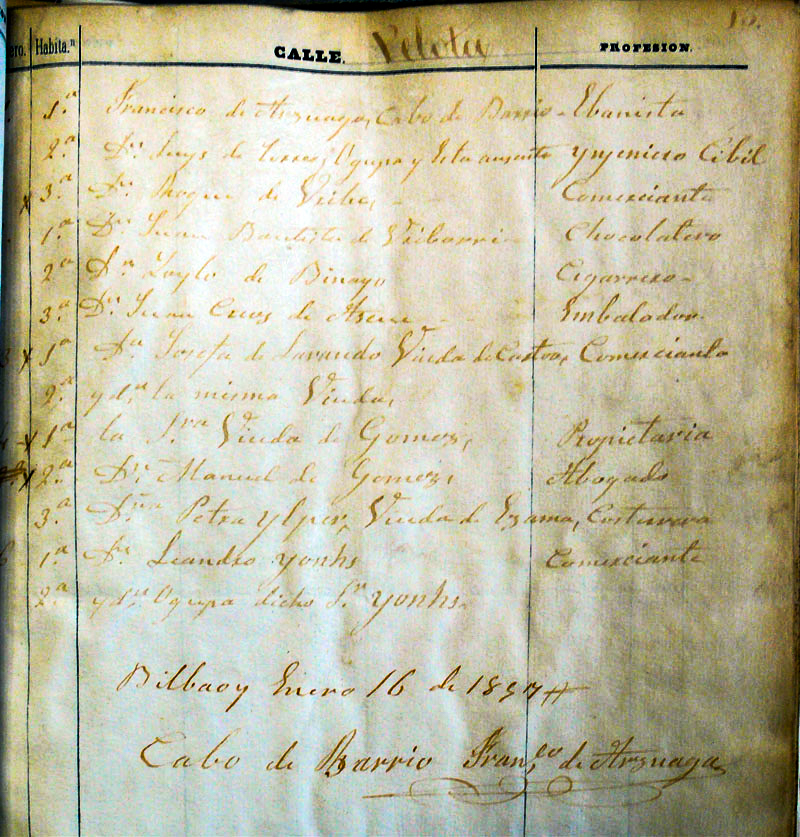 ro. Habita.n CALLE. Pelota PROFESION. 15.
1.a Francisco de Arzuaga, Cabo de Barrio - Ebanista
2.a Dn. Luys de Torres, Ogupa y Esta ausente Ynjeniero Cibil
x 3.a Dn. Roque de Uribe, - Comerciante
1.a Dn. Juan Bautista de Uribarri - Chocolatero
2.a Dn. Zoylo de Binayo Cigarrero -
3.a Dn. Juan Cruos de - - Embalador.
x 1.a Da. Josefa de Viuda de Castro, Comercianta
2.a yd.n la misma Viuda,
x 1.a la S.ra Viuda de Gomez, Propietaria
x 2.a Dn. Manuel de Gomez, Abogado
3.a Dña Petra Ylper, Viuda de Ezama, Costurera
1.a Dn. Leandro Yonhs Comerciante
2.a yd.n Ogupa dicho S.r Yonhs.
Bilbao y Enero 16 de 1857
Cabo de Barrio Fran.co de Arzuaga